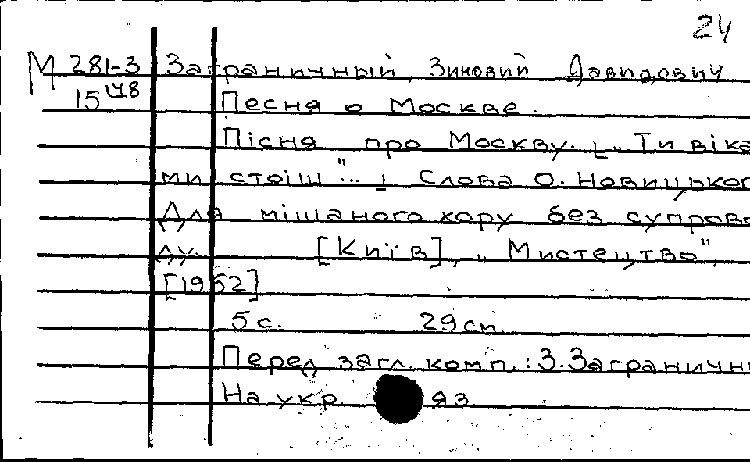 24
М 281-3 Заграничный, Зиновий Давидович
15478 Песня о Москве.
Пісня про Москву. [„Ти віка
ми стоїш"...] Слова О. Новицького
Для мішаного хору без супрово
ду. [Київ], „Мистецтво",
[1952]
5 с. 29 см
Перед загл. комп.: З. Заграничн
На укр. яз.